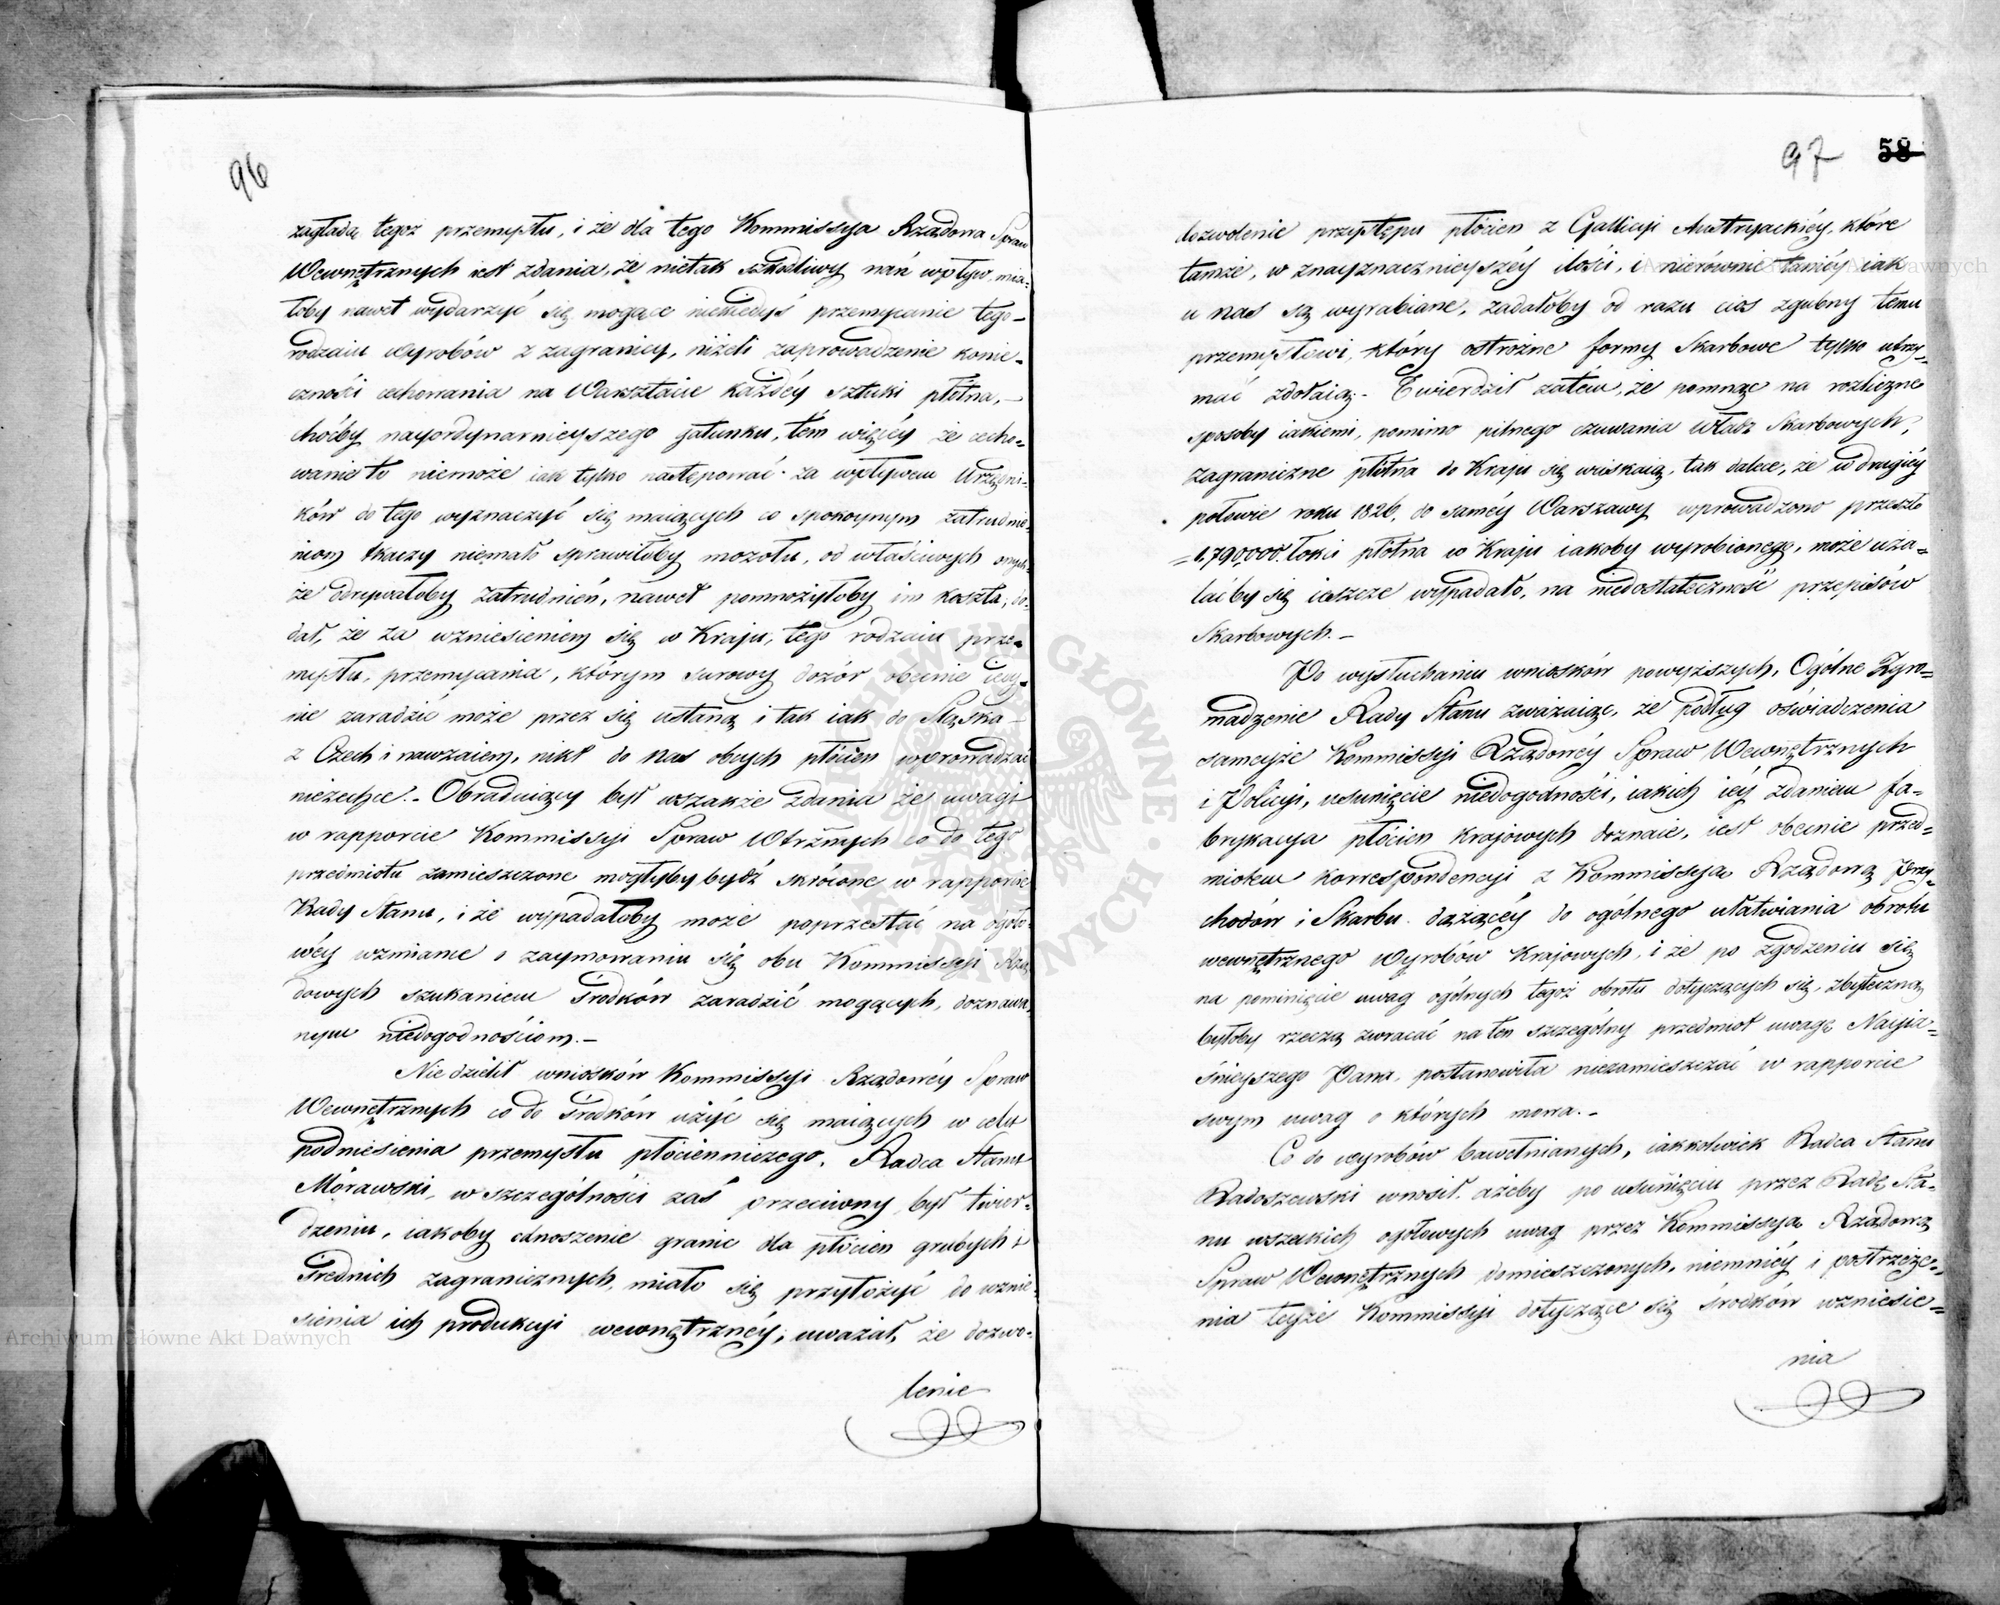 96
zagładą tegoż przemysłu, i że dla tego Kommissya Rządowa Spraw
Wewnętrznych iest zdania, że nietak szkodliwy nań wpływ, mia-
łoby nawet wydarzyć się mogące niekiedyś przemycanie tego-
rodzaiu wyrobów z zagranicy, niżeli zaprowadzenie konie-
czności cechowania na Warsztacie każdéy sztuki płótna,
choćby nayordynarnieyszego gatunku, tém więcéy że cecho-
wanie to niemoże iak tylko następować za wpływem Urzędni-
ków do tego wyznaczyć się maiących co spokoynym zatrudnie-
niom tkaczy niemało sprawiłoby mozołu, od właściwych onych-
że odrywałoby zatrudnień, nawet pomnożyłoby im koszta, do-
dał, że za wzniesieniem się w Kraju, tego rodzaiu prze-
mysłu, przemycania, którym surowy dozór obecnie iedy-
nie zaradzić może przez się ustaną i tak iak do Sląska
z Czech i nawzaiem, nikt do nas obcych płócien wprowadzać
niezechce. - Obraduiący był wszakże zdania że uwagi
w rapporcie Kommissyi Spraw Wtrznych co do tego
przedmiotu zamieszczone mogłyby bydź skrócone w rapporcie
Rady Stanu, i że wypadałoby może poprzestać na ogóło-
wéy wzmiance o zaymowaniu się obu Kommissyi Rzą
dowych szukaniem środków zaradzić mogących, doznawa-
nym niedogodnościom. -
Nie dzielił wniosków Kommissyi Rządowéy Spraw
Wewnętrznych co do środków użyć się maiących w celu
podniesienia przemysłu płócienniczego, Radca Stanu
Morawski, w szczególności zaś przeciwny był twier-
dzeniu, iakoby otnoszenie granic dla płócien grubych i
średnich zagranicznych, miało się przyłożyć do wznie-
sienia ich produkcyi wewnętrznéy, uważał, że dozwo-
lenie
97 58
dozwolenie przystępu płócien z Gallicyi Austryackiéy, które
tamże, w znacznieyszéy ilości, i nierównie taniéy iak
u nas są wyrabiane, zadałoby od razu cios zgubny temu
przemysłowi, który ostrożne formy Skarbowe tylko utrzy-
mać zdołaią. - Twierdził zatém, że pomnąc na rozliczne
sposoby iakiemi, pomimo pilnego czuwania Władz Skarbowych,
zagraniczne płótna do Kraju się wciskaią, tak dalece, że w drugiéy
połowie roku 1826, do saméy Warszawy wprowadzono przeszło
=1,790,000. łokci płótna w Kraju iakoby wyrobionego, może uża-
lać by się ieszcze wypadało, na niedostateczność przepisów
Skarbowych. -
Po wysłuchaniu wniosków powyższych, Ogólne Zgro-
madzenie Rady Stanu zważaiąc, że podług oświadczenia
sameyże Kommissyi Rządowéy Spraw Wewnętrznych
i Policyi, usunięcie niedogodności, iakich iéy zdaniem fa-
brykacya płócien krajowych doznaie, iest obecnie przed-
miotem korrespondencyi z Kommissyą Rządową Przy-
chodów i Skarbu dążącéy do ogólnego ułatwiania obrotu
wewnętrznego wyrobów krajowych, i że po zgodzeniu się
na pominięcie uwag ogólnych tegoż obrotu dotyczących się, zbyteczną
byłoby rzeczą zwracać na ten szczególny przedmiot uwagę Nayja-
śnieyszego Pana, postanowiła niezamieszczać w rapporcie
swym uwag o których mowa. -
Co do wyrobów bawełnianych, iakkolwiek Radca Stanu
Radoszewski wnosił, ażeby po usunięciu przez Radę Sta-
nu wszelkich ogółowych uwag przez Kommissyą Rządową
Spraw Wewnętrznych domieszczonych, niemniéy i postrzeże-
nia teyże Kommissyi dotyczące się środków wzniesie-
nia